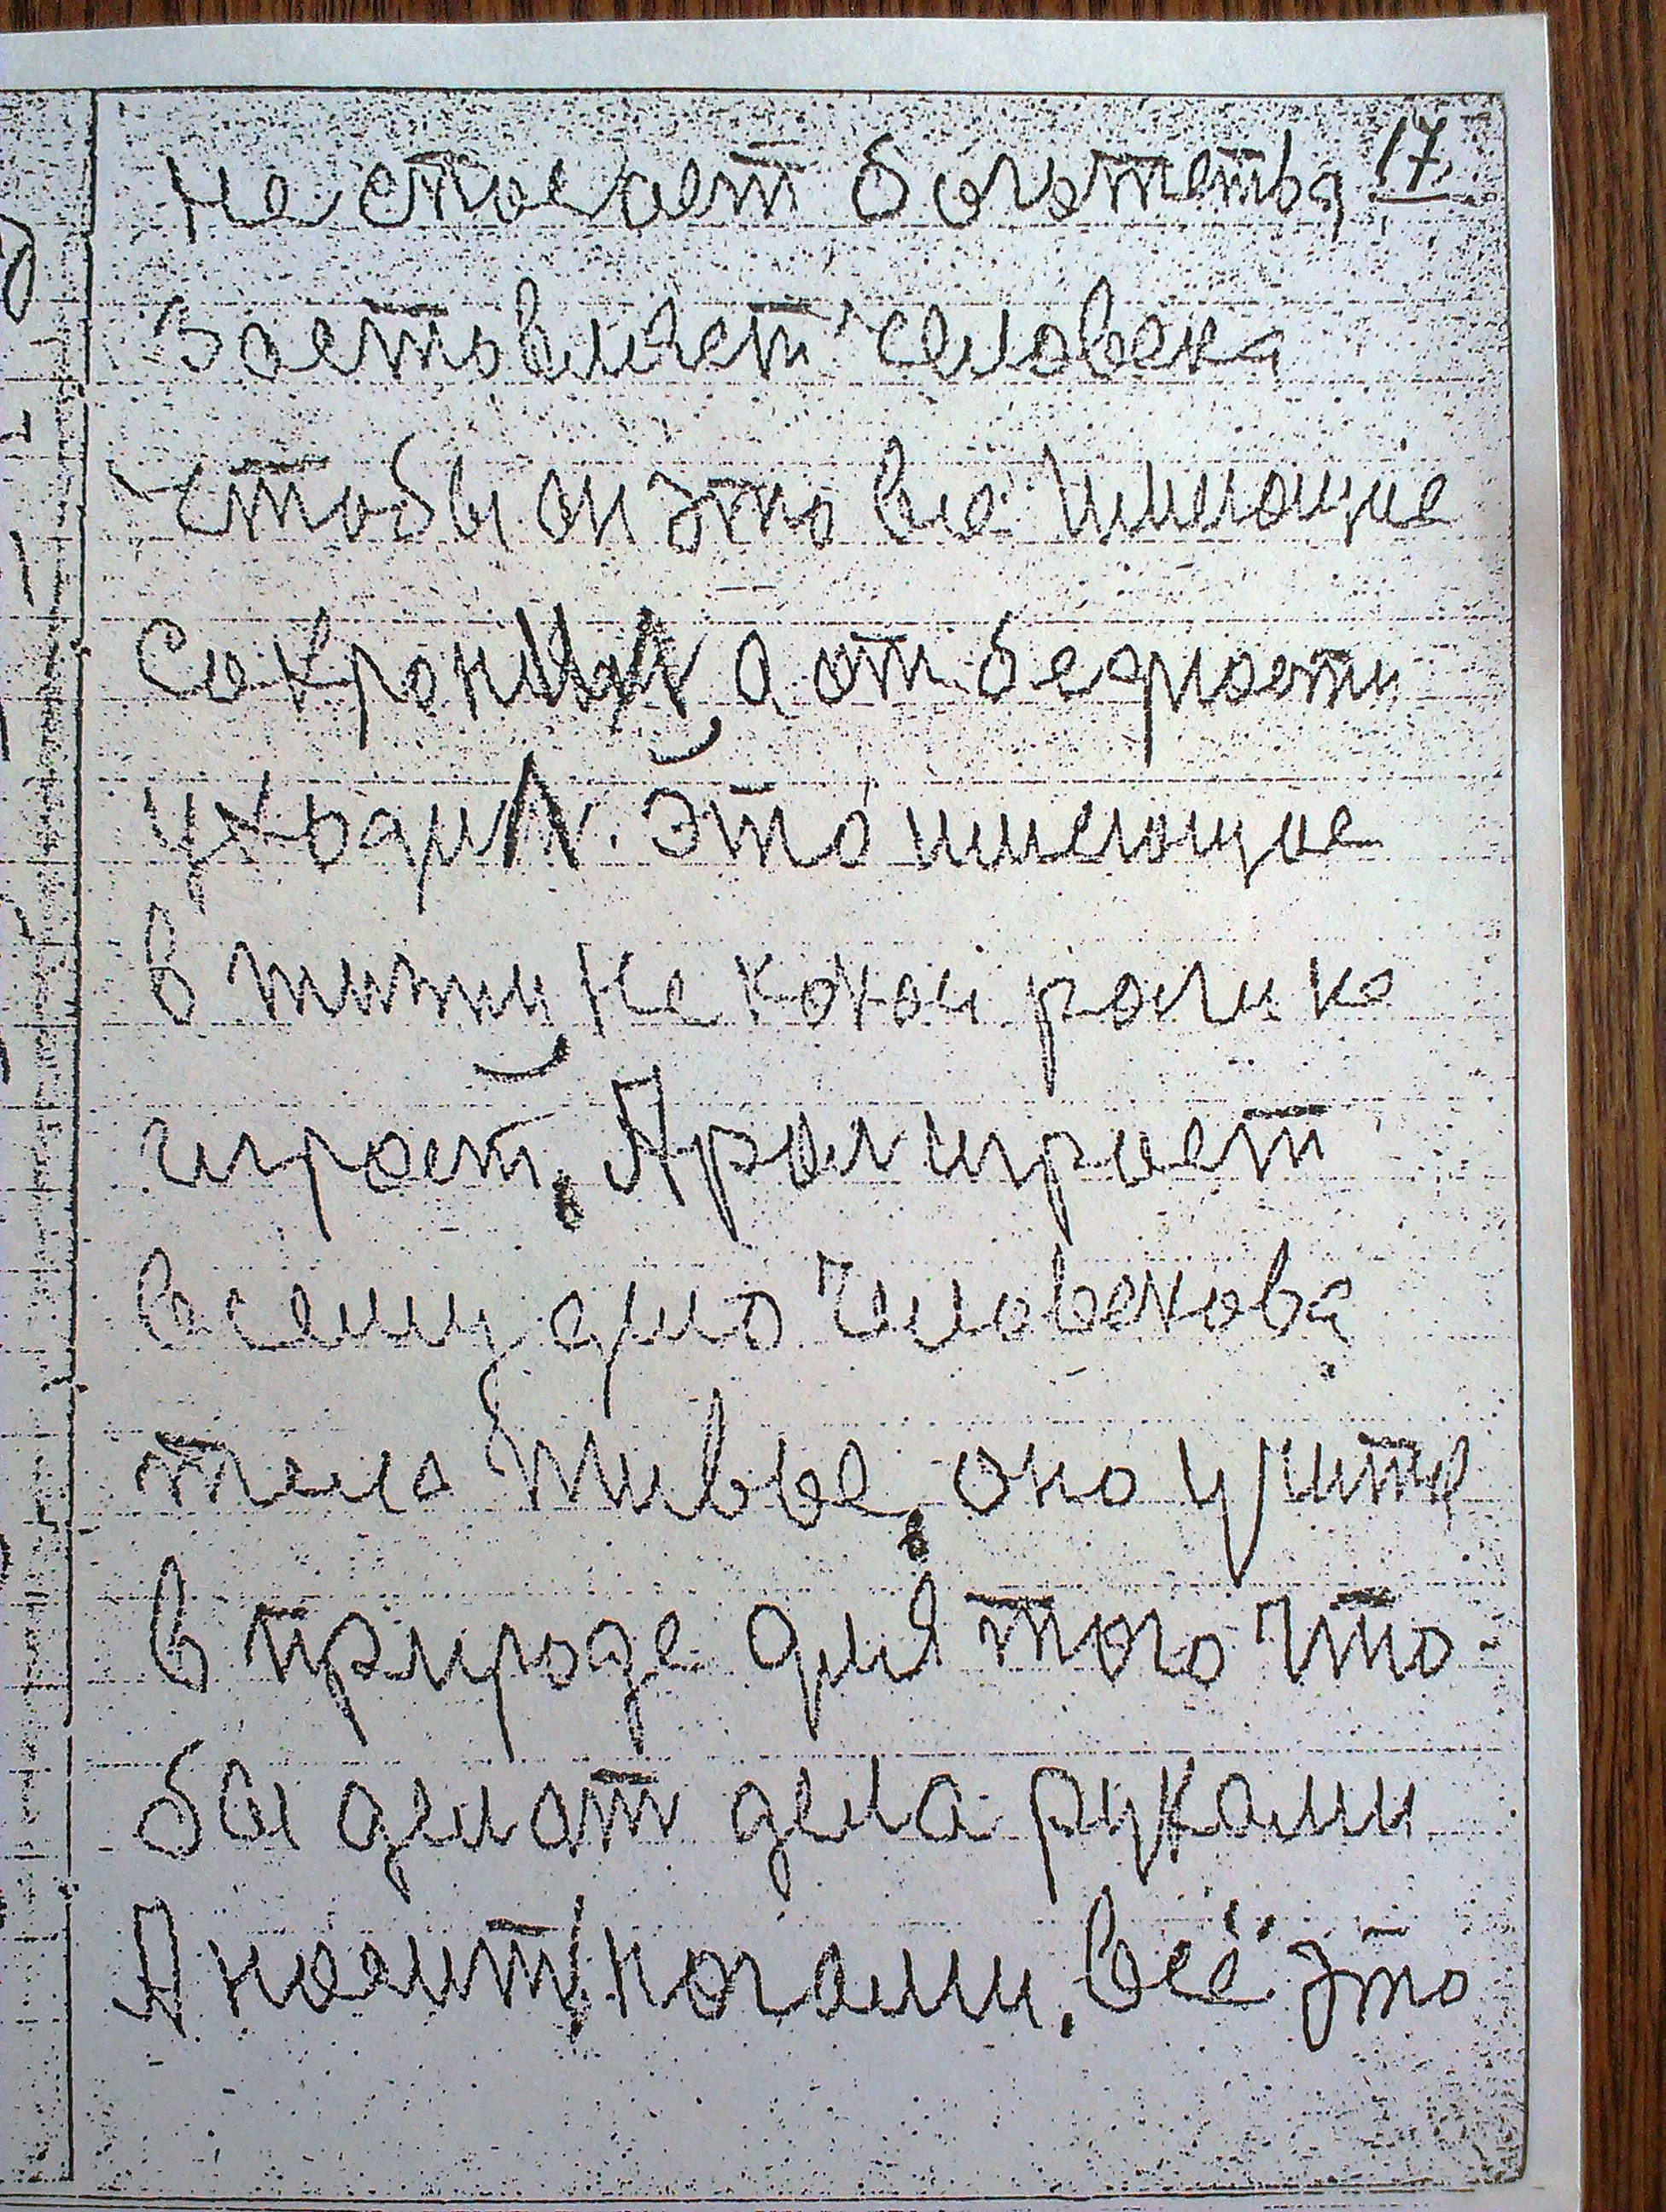 17.
не спасает богатства
заставляет человека
чтобы он это всё имеющие
сохронил, а от бедности
уходил. Это имеющие
в жизни не какой роли не
играет, А роль играет
всему дело человекова
тело живое, оно у жить
в природе для того что
бы делат дела руками
А носить ногами, всё это